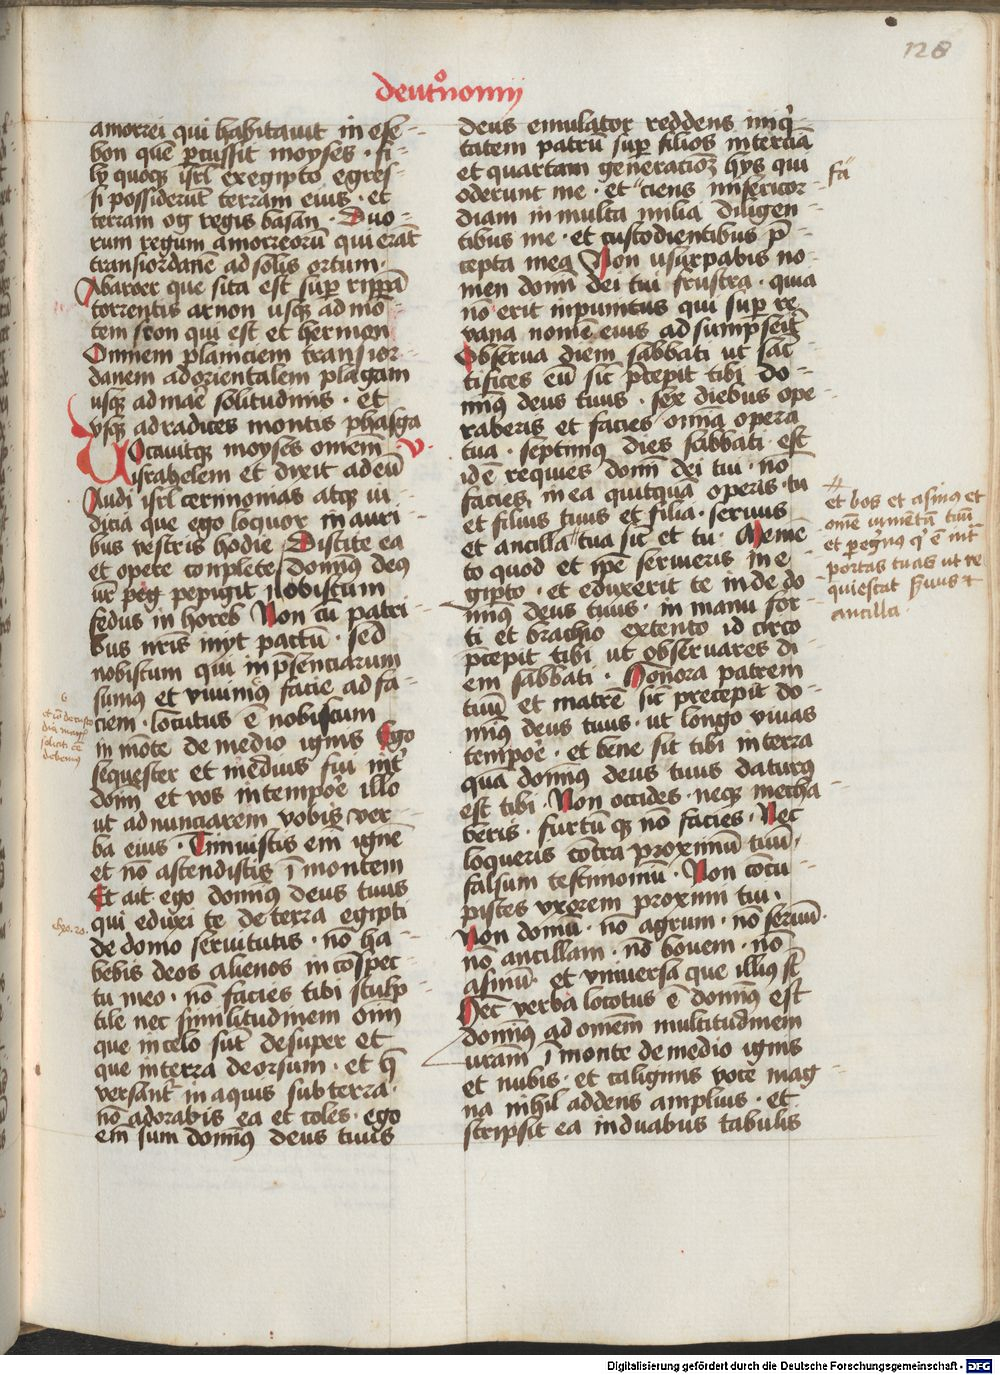 128
deut̊nomij
amorrei qui habitauit in ese-
bon quē ꝑcussit moyses · fi-
lij quoqꝫ isrl̄ ex egipto egres-
si possiderūt terram eius · et
terram og regis basan · Duo-
rum regum amorreorū qui erāt
transiordanē ad solis ortum ·
Abaroer que sita est suꝑ rippā
torrentis arnon usqꝫ ad mō-
tem seon qui est et hermon
Omnem planiciem transior-
danem ad orientalem plagam
usqꝫ ad marē solitudinis · et
usqꝫ ad radices montis phasga
Uocauitqꝫ moyses omēm · v ·
israhelem et dixit ad eū
Audi isrl̄ cerimonias atqꝫ iu-
dicia que ego loquor in auri-
bus vestris hodie Discite ea
et opere conplete Domin9 de9
ur̄ pepigit nobiscum
fedus in horeb Non cū patri-
bus nr̄is inijt pactū · sed
nobiscum qui in p̄senciarum
sum9 et viuim9 facie ad fa-
ciem · locutus ē nobiscum
in mōte de medio ignis Ego
sequester et medius fui int̄
dom̄ et vos in tempor̄e illo
ut adnunciarem vobis ver-
ba eius · Timuistis em̄ ignē
et nō ascendistis ī montem
Et ait ego domin9 deus tuus
qui eduxi te de terra egipti
de domo seruitutis · nō ha-
bebis deos alienos in cōspec-
tu meo · nō facies tibi sculp-
tile nec similitudinem om̄
que in celo sūt desuper et
que in terra deorsum · et q̄
versant̄ in aquis sub terra ·
nō adorabis ea et coles · ego
em̄ sum domin9 deus tuus
deus emulator reddens iniq̇-
tatem patrū suꝑ filios in terciā
et quartam generacionē hijs qui
oderunt me · et " ciens misericor-
diam in multa milia diligen-
tibus me · et custodientibus p̄-
cepta mea Non usurpabis no-
men dom̄ dei tui frustra · quia
nō erit inpunitus qui suꝑ re
vana nomēn eius adsumpserit
Obserua diem sabbati ut sāc-
tifices eū sic p̄cepit tibi do-
min9 deus tuus · sex diebus ope-
raberis et facies omīa opera
tua · septim9 dies sabbati est
id ē requies dom̄ dei tui · nō
facies in ea quitquā operis · tu
et filius tuus et filia · seruus
et ancilla " tua sic et tu · Memē-
to quod et ip̄e seruieris in e-
gipto · et eduxerit te inde do-
min9 deus tuus · in manu for-
ti et brachio extento id circo
p̄cepit tibi ut obseruares di-
em sabbati · Honora patrem
tuū et matrē sic precepit do-
min9 deus tuus · ut longo viuas
tempor̄e · et bene sit tibi in terra
quā domin9 deus tuus datur9
est tibi · Non occides · neqꝫ mecha-
beris · furtū qꝫ nō facies · Nec
loqueris cōtra proximū tuū
falsum testimoniū · Non concu-
pisces vxorem proximi tui ·
Non domū · nō agrum · nō seruū ·
nō ancillam · nō bouem · nō
asinū · et vniuersa que illi9 sūt
Hec verba locotus ē domin9 est
domin9 ad omēm multitudinem
uram̄ ī monte de medio ignis
et nubis · et caliginis voce mag-
na nihil addens amplius · et
scripsit ea in duabus tabulis
fa"
et bos et asin9 et
om̄e iumentū tuū
et ꝑegrin9 q̇ ē int̄
portas tuas ut re
quiescat ẜuus et
ancilla
exo. 20.
Digitalisierung gefördert durch die Deutsche Forschungsgemeinschaft · DFG